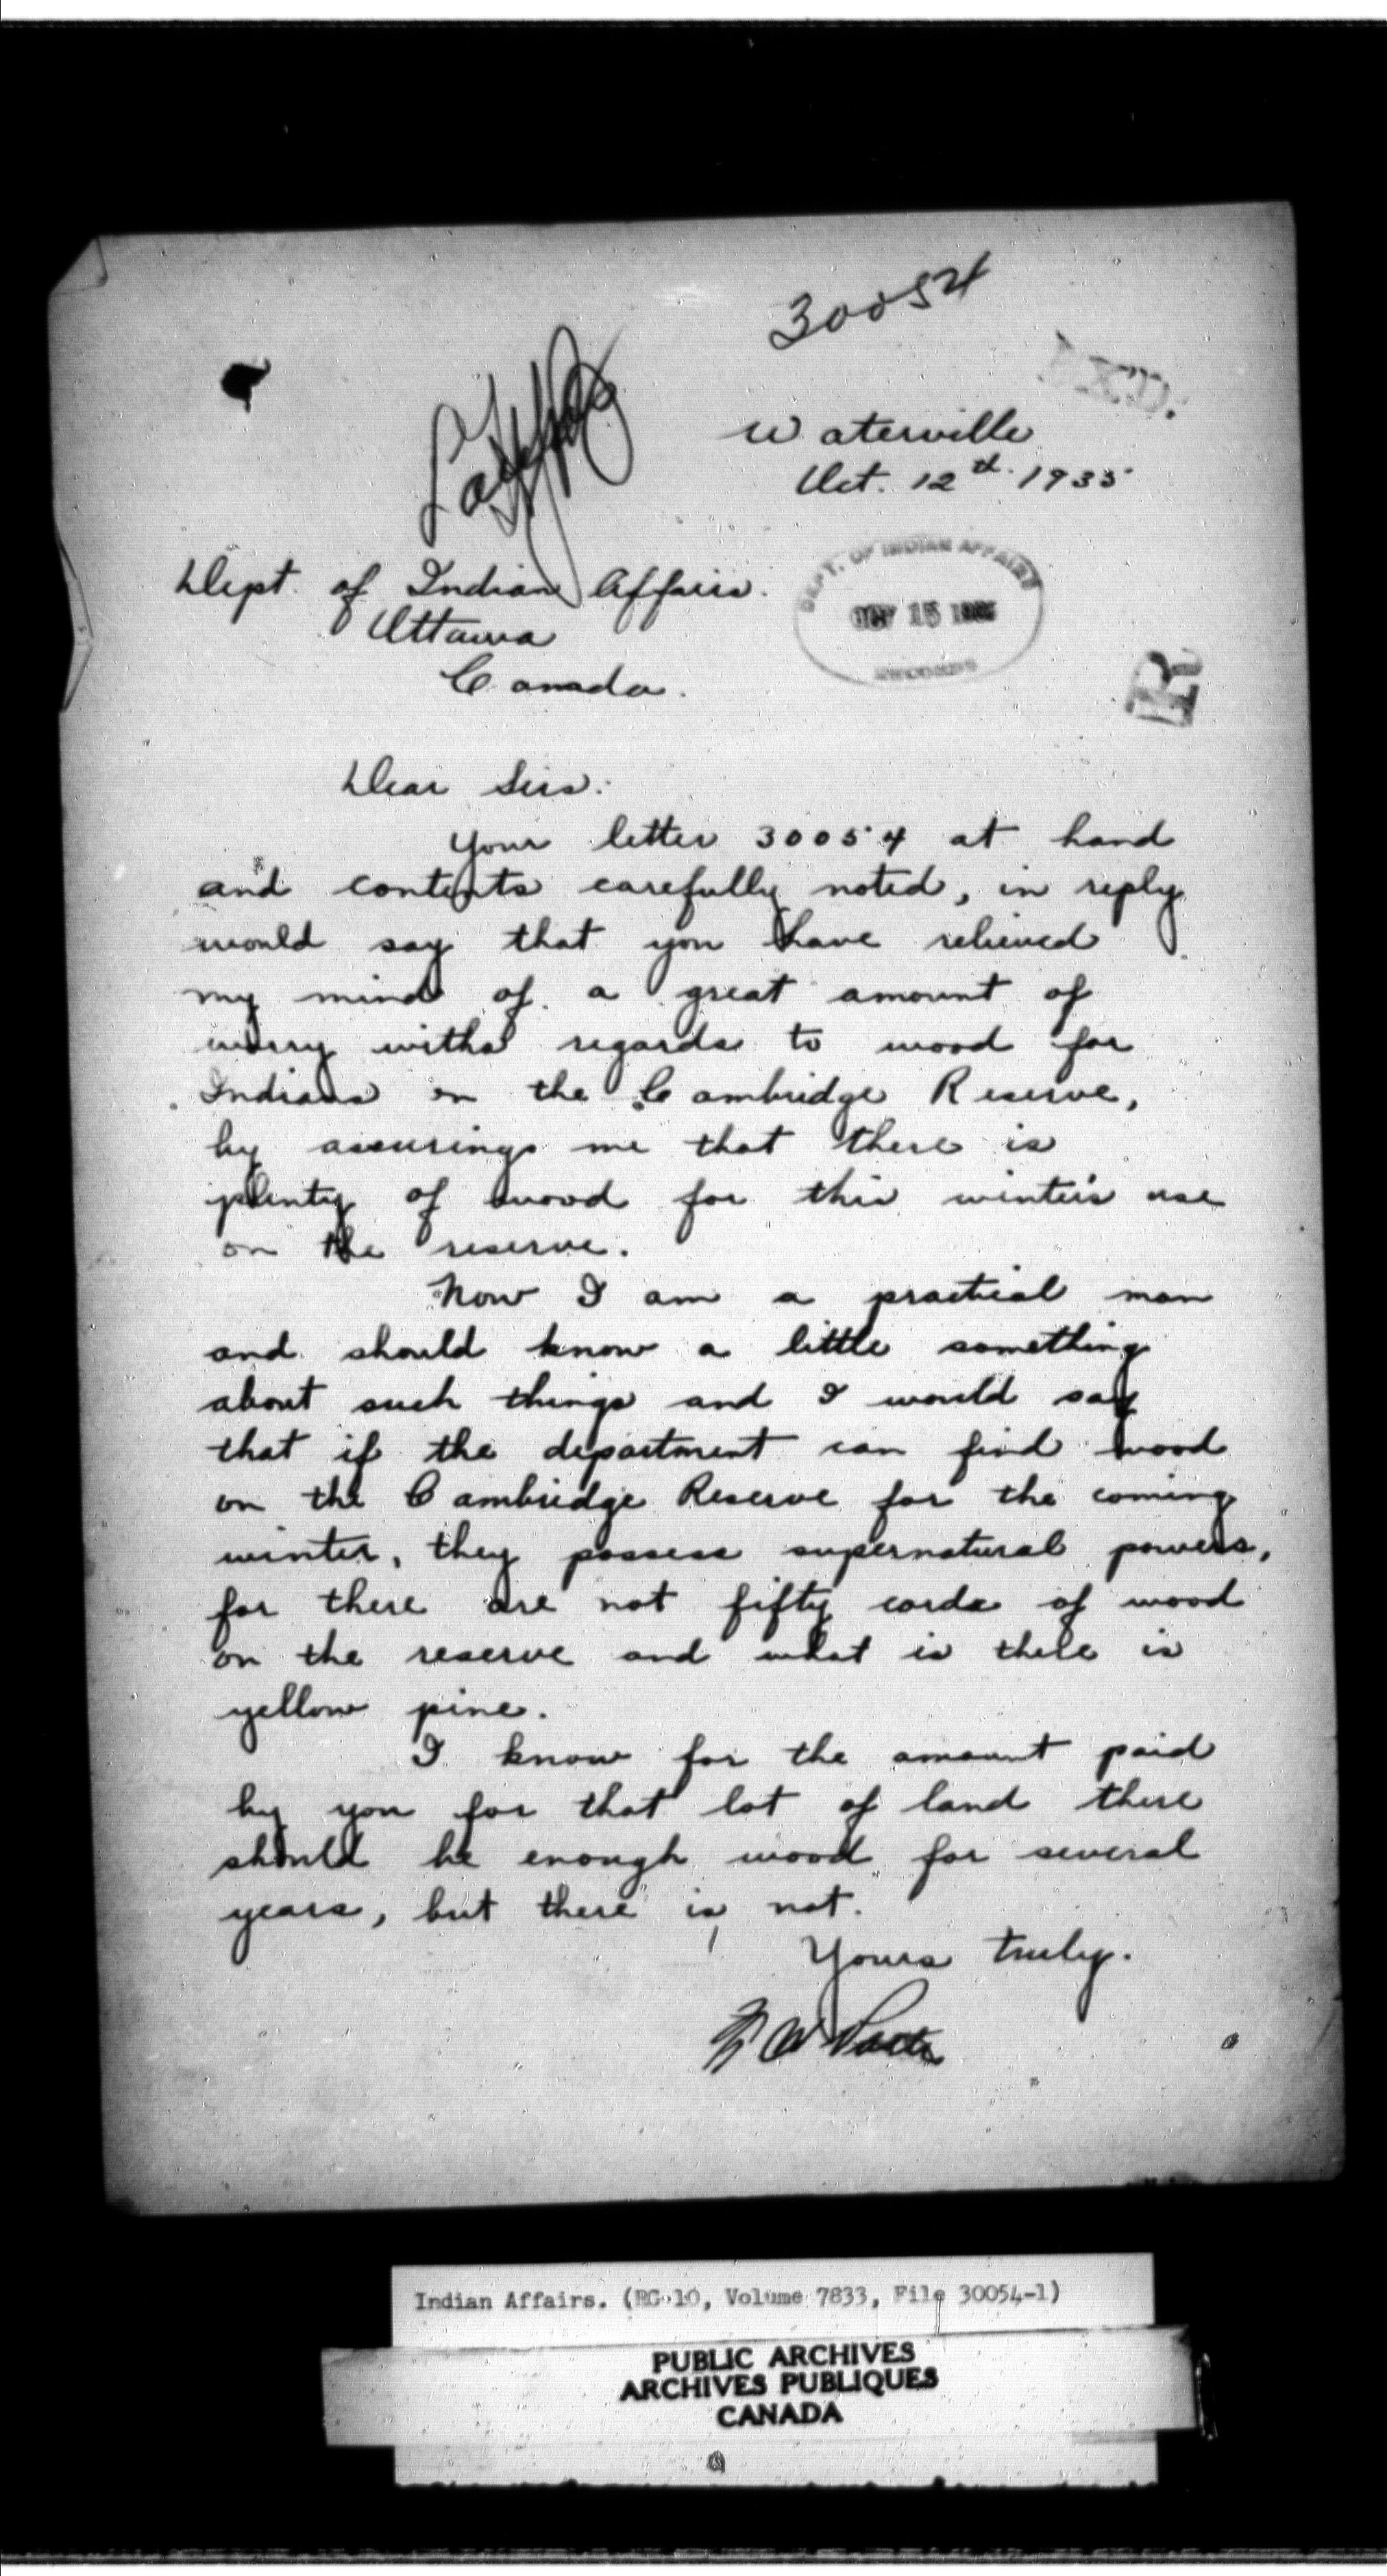 30054
EXD.
Waterville
Oct. 12th. 1935
Dept. of Indian Affairs.
Ottawa
Canada.
DEPT. OF INDIAN AFFAIRS
15
RECORDS
R
Dear Sirs:
Your letter 30054 at hand
and contents carefully noted, in reply
would say that you have relieved
my mind of a great amount of
worry withs regards to wood for
Indians on the Cambridge Reserve,
by assuring me that there is
plenty of wood for this winter's use
on the reserve.
Now I am a practical man
and should know a little something
about such things and I would say
that if the department can find wood
on the Cambridge Reserve for the coming
winter, they possess supernatural powers,
for there are not fifty cords of wood
on the reserve and what is there is
yellow pine.
I know for the amount paid
by you for that lot of land there
should be enough wood for several
years, but there is not.
Yours truly.
Indian Affairs. (RG 10, Volume 7833, File 30054-1)
PUBLIC ARCHIVES
ARCHIVES PUBLIQUES
CANADA